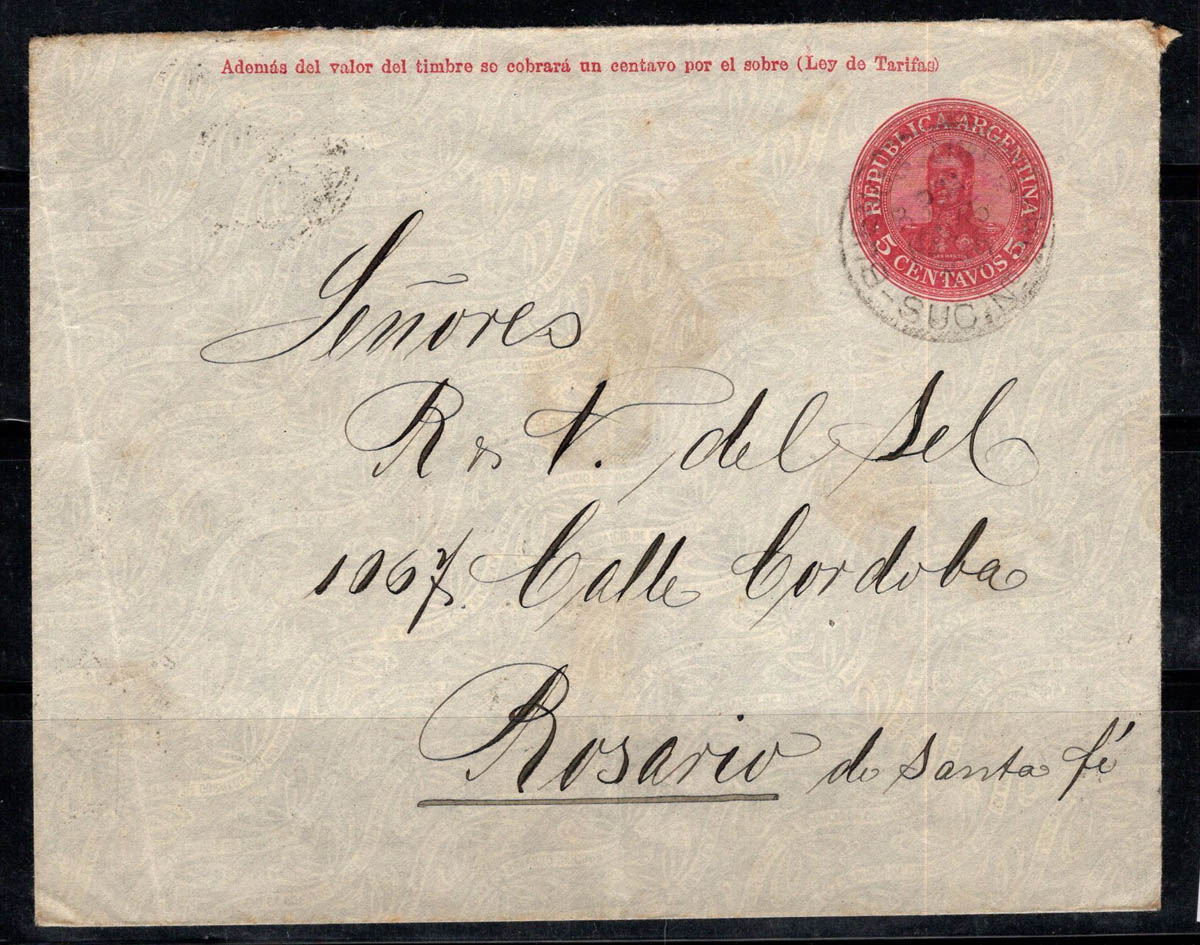 Además del valor del timbre se cobrará un centavo por el sobre (Ley de Tarifas)
REPUBLICA ARGENTINA
5 CENTAVOS 5
SUC
Señores
R & V. del Sel
1067 Calle Cordoba
Rosario de Santa fé